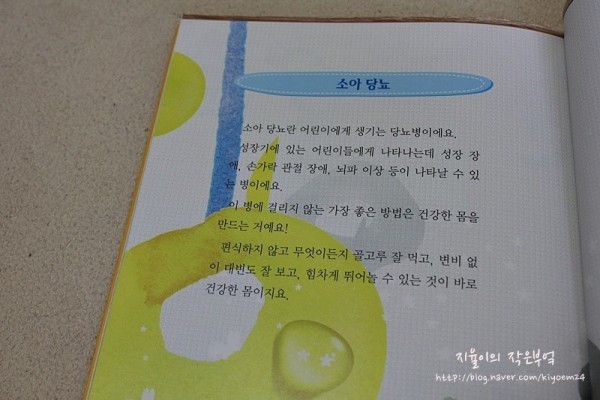 소아 당뇨
소아 당뇨란 어린이에게 생기는 당뇨병이에요.
성장기에 있는 어린이들에게 나타나는데 성장 장
애, 손가락 관절 장애, 뇌파 이상 등이 나타날 수 있
는 병이에요.
이 병에 걸리지 않는 가장 좋은 방법은 건강한 몸을
만드는 거예요!
편식하지 않고 무엇이든지 골고루 잘 먹고, 변비 없
이 대변도 잘 보고, 힘차게 뛰어놀 수 있는 것이 바로
건강한 몸이지요.
지율이의 작은부엌
http://blog.naver.com/kiyoem24